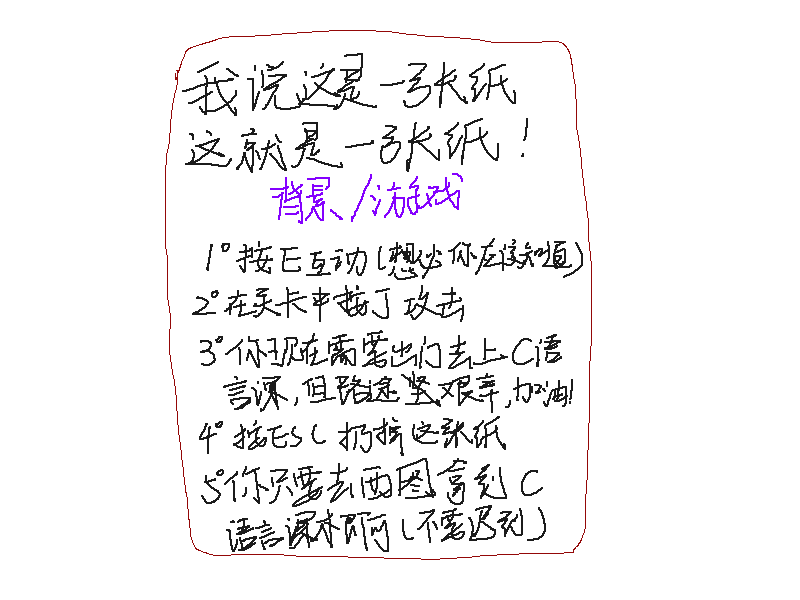 我说这是一张纸
这就是一张纸！
背景/游戏
1°按E互动(想必你应该知道)
2°在关卡中按J攻击
3°你现在需要出门去上C语
言课,但路途艰辛,加油!
4°按ESC扔掉这张纸
5°你只要去西图拿到C
语言课本即可(不要迟到)